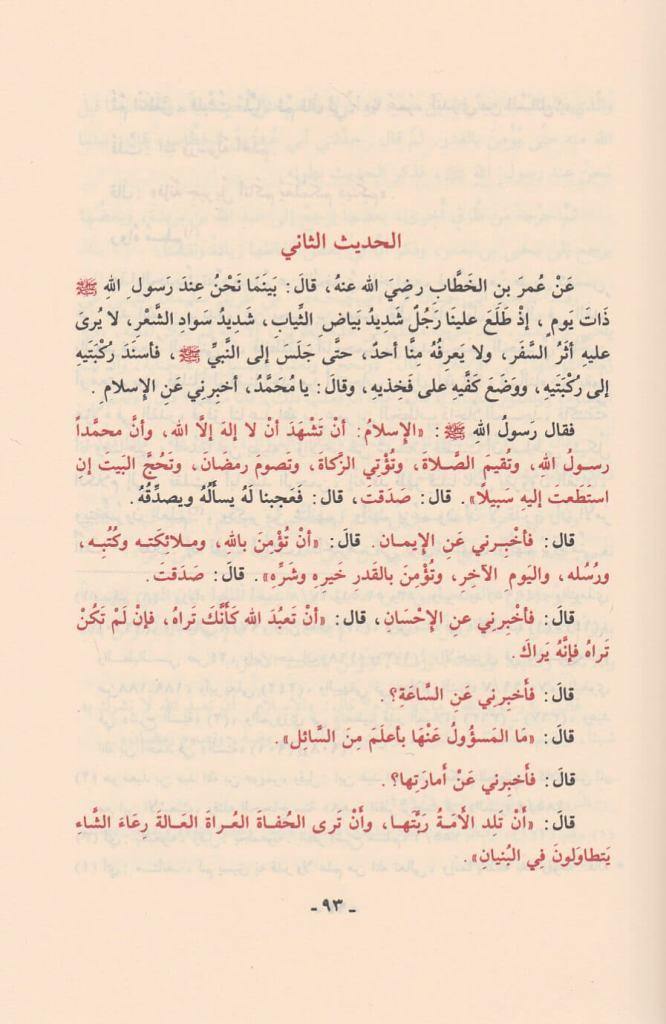 الحديث الثاني
عَنْ عُمرَ بن الخَطَّابِ رضيَ الله عنهُ، قالَ: بَينَمَا نَحْنُ عِندَ رَسول اللهِ ﷺ
ذَاتَ يَومٍ، إذْ طَلَعَ علينا رَجُلٌ شَديدُ بَياضِ الثِّيابِ، شَديدُ سَوادِ الشَّعْرِ، لا يُرىَ
عليهِ أثَرُ السَّفَرِ، ولا يَعرِفُهُ مِنَّا أحدٌ، حتَّى جَلَسَ إلى النَّبيِّ ﷺ، فأسنَدَ رُكْبَتَيهِ
إلى رُكْبَتَيهِ، ووَضَعَ كَفَّيهِ على فَخِذيهِ، وقالَ: يا مُحَمَّدُ، أخبِرنِي عَنِ الإسلامِ.
فقال رَسولُ اللهِ ﷺ: «الإسلامُ: أنْ تَشْهَدَ أنْ لا إلهَ إلَّا الله، وأنَّ محمَّداً
رسولُ الله، وتُقيمَ الصَّلاةَ، وتُؤْتِيَ الزَّكاةَ، وتَصومَ رمضانَ، وتَحُجَّ البَيتَ إن
استطَعتَ إليهِ سَبيلاً». قالَ: صَدَقتَ، قال: فَعَجِبنا لَهُ يسألُهُ ويصدِّقُهُ.
قال: فأخْبِرني عَنِ الإيمانِ. قالَ: «أنْ تُؤْمِنَ باللهِ، وملائكَتِه وكُتُبِه،
ورُسُلِه، واليَومِ الآخِرِ، وتُؤْمِنَ بالقَدرِ خَيرِهِ وشَرِّهِ». قالَ: صَدَقتَ.
قالَ: فأخْبِرني عنِ الإحْسَانِ، قال: «أنْ تَعبُدَ الله كَأنَّكَ تَراهُ، فإنْ لَمْ تَكُنْ
تَراهُ فإنَّهُ يَراكَ.
قالَ: فَأخبِرنِي عَنِ السَّاعَةِ؟.
قالَ: «مَا المَسؤُولُ عَنْهَا بأعلَمَ مِنَ السَّائِلِ».
قالَ: فأَخبِرني عَنْ أمارَتِها؟.
قالَ: «أن تَلِد الأمَةُ رَبَّتَها، وأَنْ تَرى الحُفاةَ العُراةَ العَالةَ رِعَاءَ الشَّاءِ
يَتطاوَلونَ فِي البُنيانِ».
- ٩٣ -